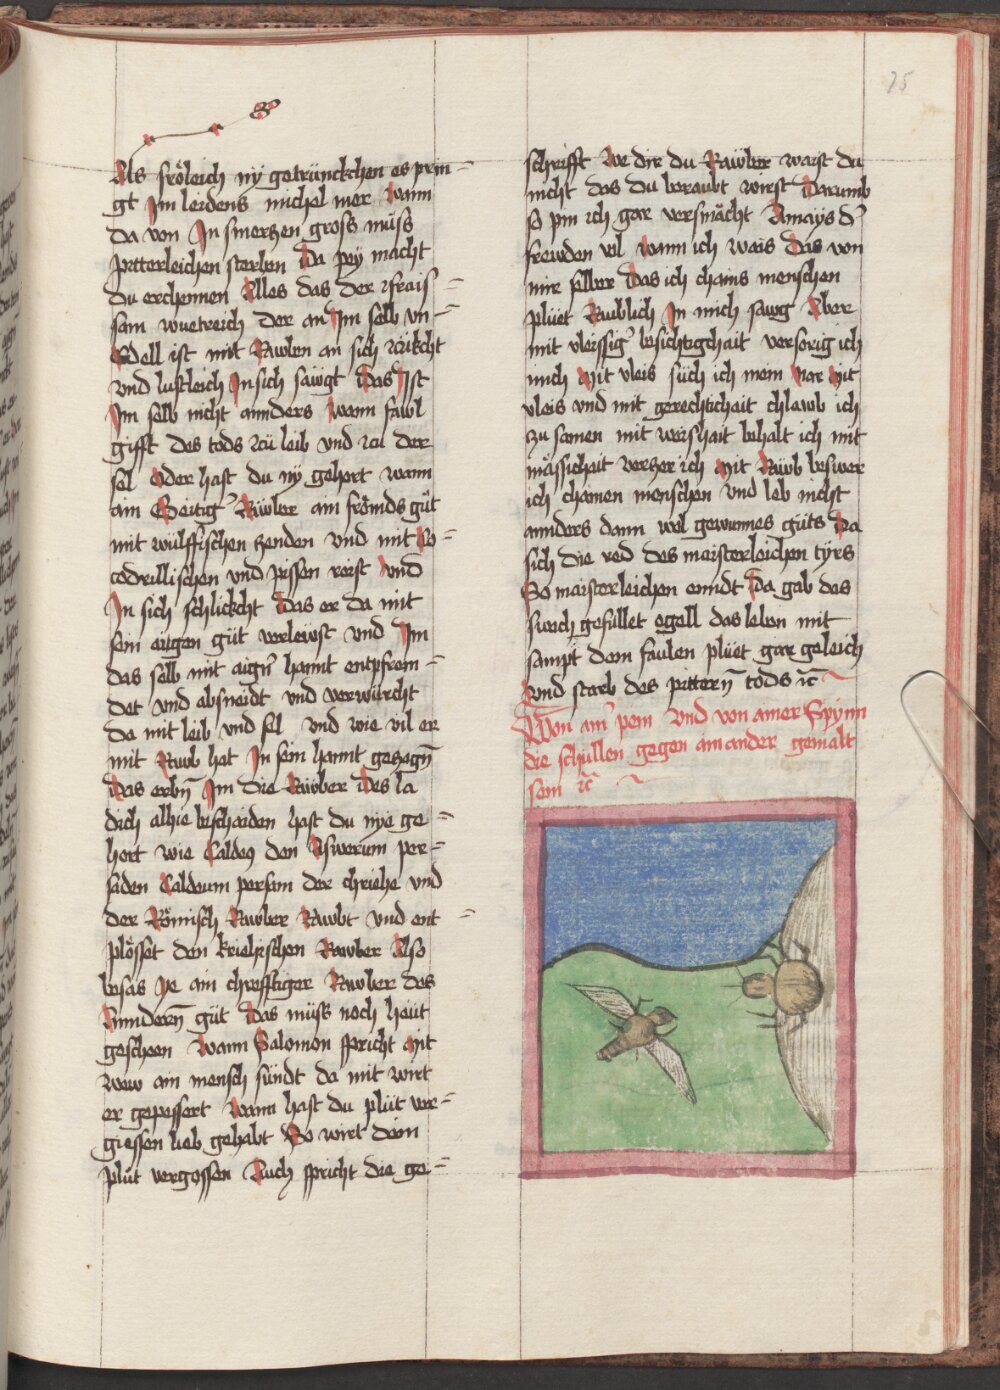 75
Als frőleich ny getrünckchen es prin-
gt Im leidens michel mer wann
da von In smerczen gross müss
pitterleichen sterben Da pey macht
du erchennen Alles das der
sam wuetreich der an Im selb vn-
Edell ist mit Rawben an sich zukcht
vnd lustleich In sich sawgt das Ist
Im selb nicht annders wann fawl
gifft des tods zu leib vnd zu der
sel Oder hast du ny gehort wann
ain Geitig' Räwber ain frőmds güt
mit wülffischen henden vnd mit Co-
codrillischen vnd pissen reist vnd
In sich schlickcht das er da mit
sein aigen güt verlewst vnd Im
das selb mit aign' hannt entpfrem-
det vnd absneidt vnd verwürcht
da mit leib vnd sel vnd wie vil er
mit Rawb hat In sein hannt geczogn
das erbn Im die Räwber des la
dich alhie beschaiden hast du nye ge-
hort wie Caldeus den Aswerum per-
saden Caldeum persam der chriehe vnd
der Rőmisch Rawber Rawbt vnd ent-
plősset den kriehischen Rawber Also
besas ye ain chrefftiger Rawber des
Anndern güt das müss noch heüt
gescheen Wann Salomon spricht Mit
wew ain mensch sündt da mit wirt
er gepessert Wann hast du plüt ver-
giessen lieb gehabt So wirt dein
plüt vergossen Auch spricht die ge-
schrifft We dir du Rawber waist du
nicht das du beraubt wirst Darumb
so pin ich gar versmächt Amays d'
frewden vol wann ich wais das von
mir selber das ich chains menschen
plüet Raublich In mich sawg Aber
mit vleissig' besichtigchait versorig ich
mich Mit vleis süch ich mein nar Mit
vleis vnd mit gerechtichait chlawb ich
zu samen mit weishait behalt ich mit
mässichait verczer ich Mit Räwb beswer
ich chainen menschen vnd leb nicht
annders dann wol gewunnes güts Da
sich die red des maisterleichen tyrs
So maisterleichen enndt Da gab das
swach gefüllet egell das leben mit
sampt dem faulen plüet gar geleich
vnd starb des pittern tods etc
Von ain' pein vnd von ainer Spynn
die schüllen gegen ain ander gemalt
sein etc